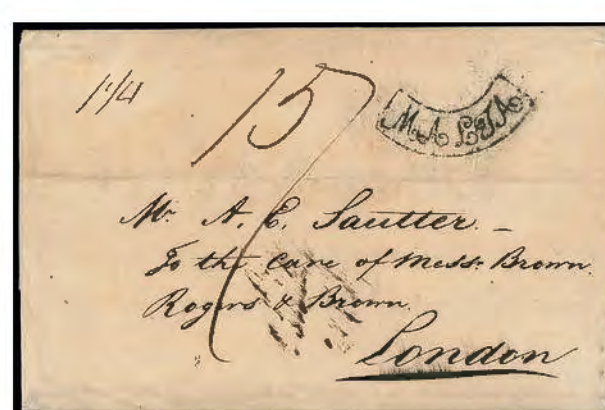 1/4
15
MALTA
Mr. A. E. Sautter. -
To the care of Messrs. Brown
Rogers & Brown.
London